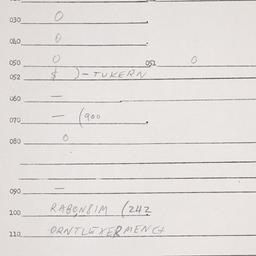 030 0
040 0
050 0 051 0
052 $ )-TUKERN
060 —
070 — (900
080 0
090 —
100 RABONSIM (242
110